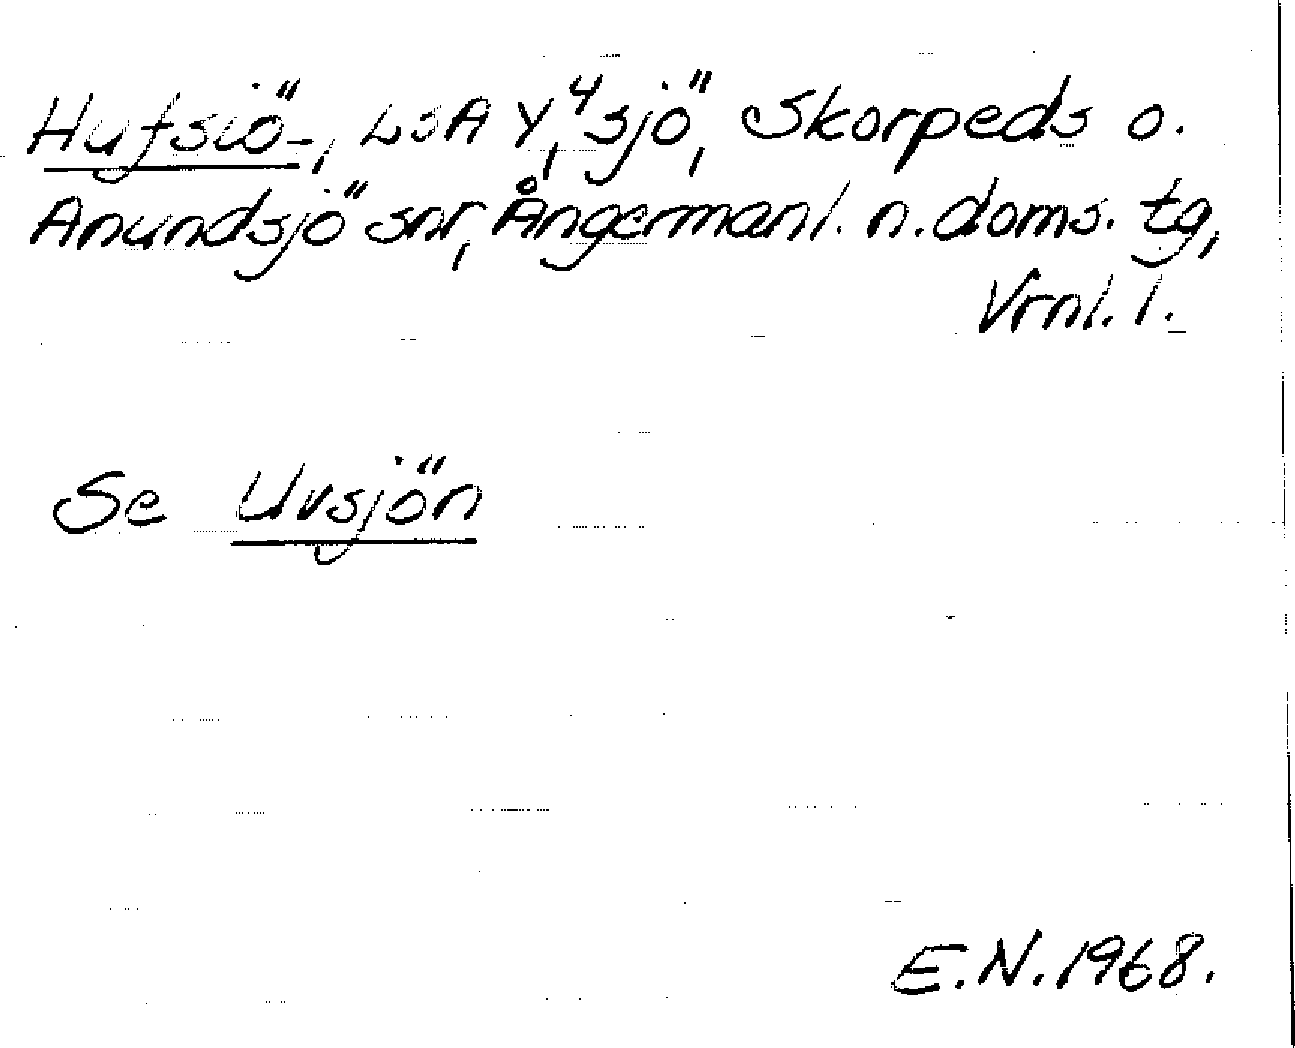 Hufsiö-, LSA Y⁴, sjö, Skorpeds o.
Anundsjö snr, Ångermanl. n. doms. tg,
Vrnl. l.
Se Uvsjön
E.N. 1968.